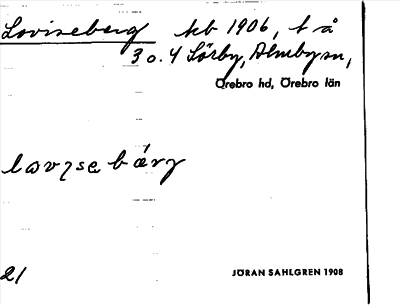 Loviseberg kb 1906, t å
3 o. 4 Sörby, Almby sn,
Örebro hd, Örebro län
lovisebärj
21
JÖRAN SAHLGREN 1908